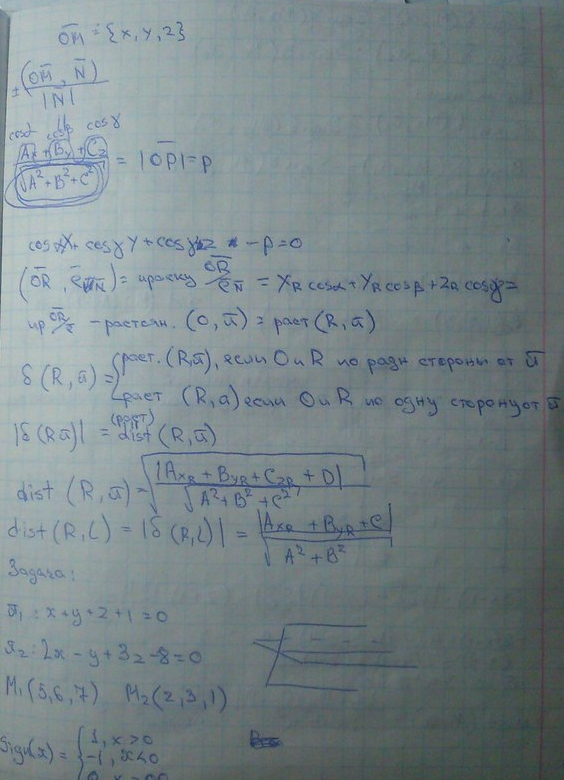 OM = {x, y, z}
± (OM, N)
|N|
cosα cosβ cosγ
Ax + By + Cz
√A² + B² + C² = |OP| = p
cosαx + cosγ y + cosγz - p = 0
(OR, eN) = проекц OR/eN = xR cosα + yR cosβ + zR cosγ =
пр OR/π - растоян. (O, π) = раст (R, π)
δ (R, π) = { раст. (R, π), если O и R по разн стороны от π
раст (R, а) если O и R по одну сторону от π
(раст)
|δ (R π)| = dist (R, π)
dist (R, π) = √ |AxR + ByR + CzR + D|
√A² + B² + C²
dist (R, L) = |δ (R, L)| = |AxR + ByR + C|
√A² + B²
Задача:
π₁ : x + y + z + 1 = 0
π₂ : 2x - y + 3z - 8 = 0
M₁ (5, 6, 7) M₂ (2, 3, 1)
Sign(x) = { 1, x > 0
-1, x < 0